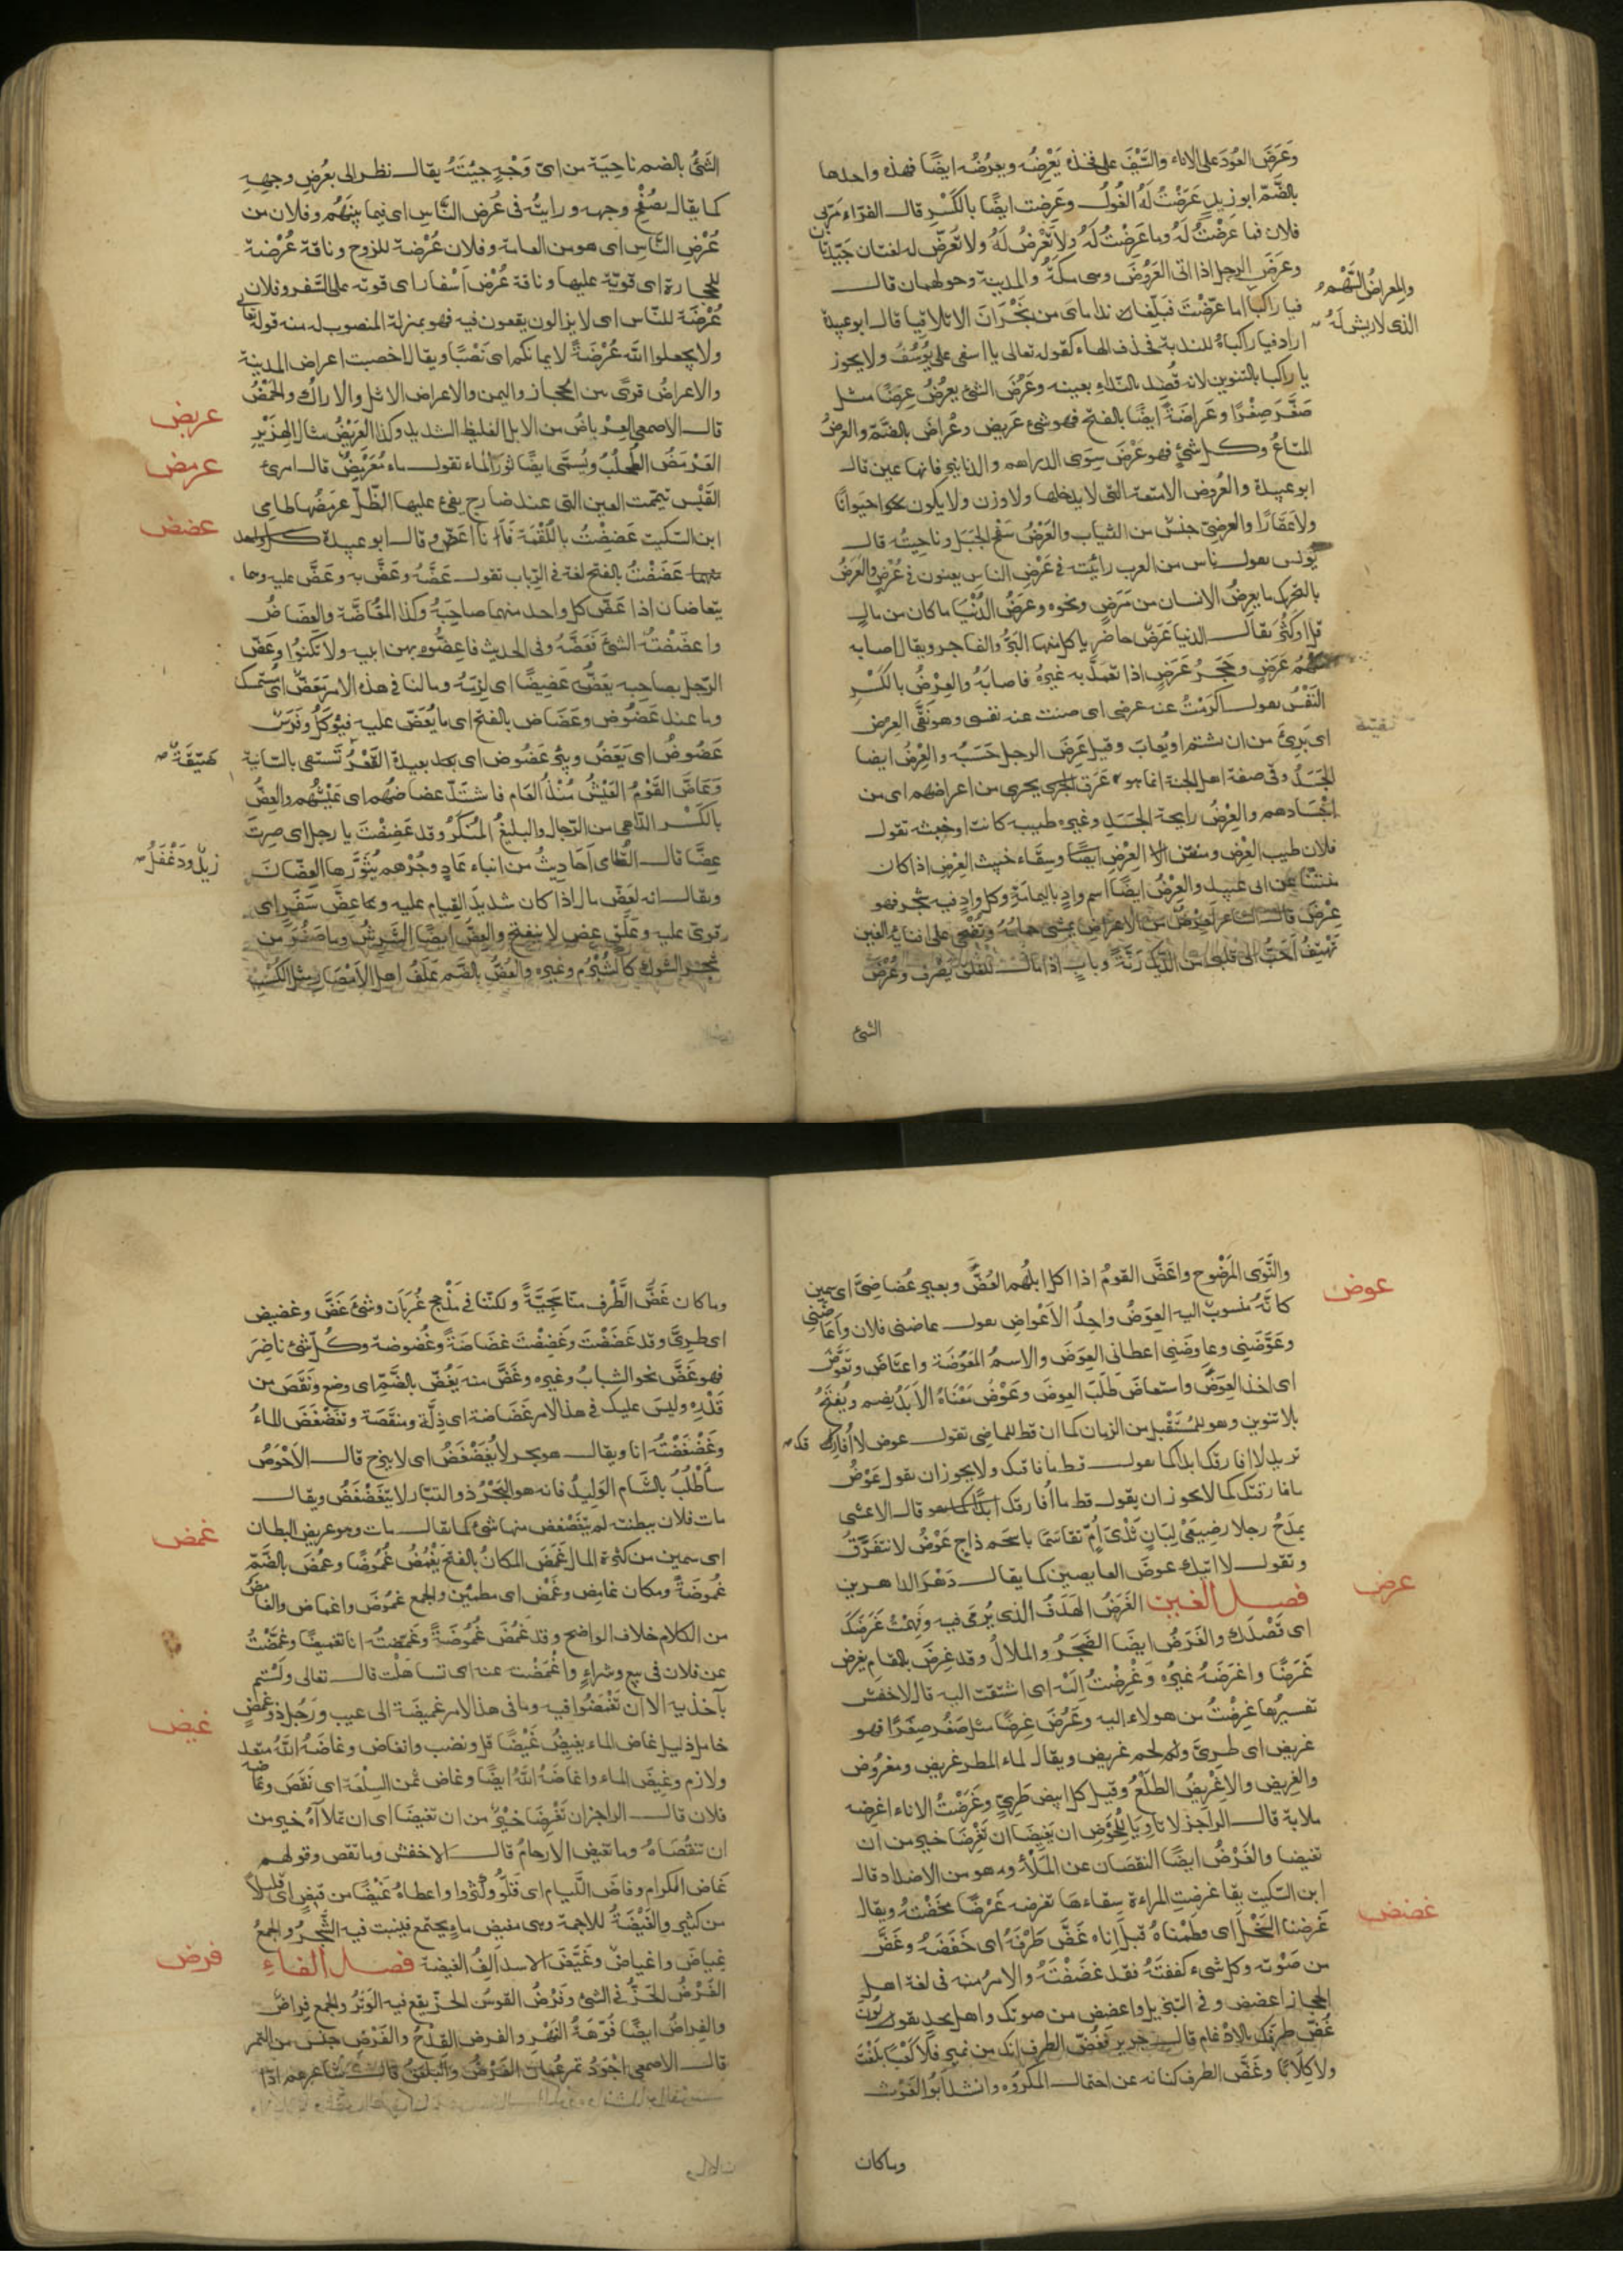 وعَرَضَ العُودَ على الاناء والسَّيْفَ على فخذه يَعْرِضُه ويعرُضُه ايضًا فهذه واحدها
بالضَّمّ ابو زيد عَرَضَتْ لَهُ الغُولُ وعَرِضت ايضًا بالكَسْرِ قال الفرّاء مَرّبى
فلان فما عَرَضْتُ لَهُ وما عَرِضْتُ لَهُ ولا تَعْرِضُ لَهُ ولا تَعْرَضْ له لغتان جَيّدتان
وعَرَضَ الرجل اذا اتى العَرُوضَ وهى مكّةُ والمدينة وحولهمان قال
والمِعراضُ السَّهْمُ
الذى لا ريش لَهُ
فيا راكبًا اما عَرَضْتَ فبلّغن نداماىَ من نَجْرَانَ ان لا تلاقيا قال ابو عبيدة
اراد فيا راكباهُ للندبة فحذف الهاء كقوله تعالى يا اسفى على يُوسُفَ ولا يجوز
يا راكبا بالتنوين لانه قَصَد بالنداء بعينه وعَرُضَ الشئ يعرُضُ عِرَضًا مثل
صَغُرَ صِغَرًا وعَرَاضَةً ايضًا بالفتح فهو شئ عَرِيض وعُرَاض بالضّمّ والعرضُ
المتاعُ وكل شئ فهو عَرْضٌ سِوى الدراهم والدنانير فانها عين قال
ابو عبيدة والعُرُوض الامتعة التى لا يدخلها ولا وزن ولا يكون حيوانًا
ولا عَقَارًا والعرضىّ جنسٌ من الثياب والعَرْضُ سَفْح الجَبَل وناحيتُه قال
يُونس يقول ناس من العرب رأيته فى عَرْضِ الناس يعنون فى عُرْضٍ والعَرَضُ
بالتحريك ما يعرِضُ الانسان من مَرَضٍ ونحوه وعَرَضُ الدُّنْيَا ما كان من مالٍ
قلّ او كَثُرَ يقال الدنيا عَرَضٌ حاضر ياكل منها البَرُّ والفاجر ويقال اصابه
سَهْمُ عَرَضٍ وحَجَرُ عَرَضٍ اذا تعمَّدَ به غيرُهُ فاصابَهُ والعِرْضُ بالكَسْرِ
النَّفْسُ يقول اكرَمْتُ عنه عرضى اى صنت عنه نفسى وهو نَقِىّ العِرض
اى بَرِئٌ من ان يشتم او يُعابَ وقيل عِرْضُ الرجل حَسَبُهُ والعِرْضُ ايضا
الجَسَدُ وفى صفة اهل الجنة انما هو عَرَق يجرى من اعراضهم اى من
اجْسَادهم والعِرْضُ رايحة الجَسَدِ وغيره طيبه كانت او خبيثه تقول
فلان طيب العِرْض ومنتن العِرْضِ ايضًا وسِقَاء خبيث العِرْض اذا كان
منتنًا عن ابى عبيد والعِرْضُ ايضًا اسم وادٍ باليمامَةِ وكل وادٍ فيه شجر فهو
عِرْضٌ قال الشاعر لَعِرْضٌ من الاعراض يمشى حمامُهُ وتُضْحِى على افنانه الغين
تَهْتِفُ احَبُّ الى قلبى من الدِّيك رَنَّةً وبابٍ اذا مال للغلق يَصْرف وعُرْضُ
الشئ
الشَئُ بالضم ناحِيَة من اىّ وَجْهٍ جِئْتَهُ يقال نظر الى بعُرض وجههِ
كما يقال بصُفْحِ وجهه ورايتُه فى عُرض النّاس اى فيما بينهُم وفلان من
عُرْض النّاسِ اى هو من العامة وفلان عُرْضة للزوج وناقة عُرْضة
للحجارة اى قويّة عليها وناقة عُرْضُ اَسْفار اى قوية على السَّفر وفلان
عُرْضَة للنّاس اى لا يزالون يقعون فيه فهو بمنزلة المنصوب له منه قوله تعالى
ولا تجعلوا اللَّهَ عُرْضَةً لايمانكم اى نَصْبًا ويقال اخصبت اعراض المدينة
والاعراضُ قرىً بين الحجاز واليمن والاعراض الاثل والاراك والحَمْضُ
عربض
قال الاصمعى العِرْباضُ من الابل الغليظ الشديد وكذا العِرَبْضُ مثال الهِزَبْرِ
عرمض
العَرْمَضُ الطُّحلُبُ ويُسمَّى ايضًا ثورَ الماء تقول ماء مُعَرْمِضٌ قال امرئ
القَيْس تيمّمت العين التى عند ضارج يفئُ عليها الظّلّ عَرمَضُها طامى
عضض
ابن السكيت عَضِضْتُ باللُّقْمَة فَانا اعَضّ وقال ابو عبيدة
عَضَضْتُ بالفتح لغة فى الرّباب تقول عَضَّهُ وعَضَّ به وعَضَّ عليه وهما
يتعاضّان اذا عَضّ كل واحد منهما صاحِبَهُ وكذا المعُاضَّة والعِضَاضُ
واعضَضْتُه الشئَ فَعَضَّهُ وفى الحديث فاعِضُّوه بهن ابيه ولا تكنوُا وعَضّ
الرّجل بصاحبه يعَضُّ عَضِيضًا اى لزِمَهُ وما لنا فى هذه الامر مَعَضّ اى مستمسك
وما عنده عَضُوض وعَضَاض بالفتح اى ما يُعَضّ عليه فيُؤكَلُ وفَرَسٌ
هَيّقَةٌ
عَضُوضٌ اى يَعَضّ وبِئر عَضُوض اى بعيدة القَعْرِ تُستقى بالسانِية
وعَاضَّ القَوْمُ العَيْشُ مُنْذُ العَام فاشتَدّ عضاضُهُم اى عَيْشُهم والعِضُّ
بالكَسْر الدّاهى من الرّجال والبليغُ المُنْكَرُ وقد عَضِضْتَ يا رجل اى صِرتَ
زيدٌ ودَغْفَلُ
عِضًّا قال القُطَامى اَحَادِيثُ من انباء عَادٍ وجُرْهم يُثَوّرُها العِضّانِ
ويقال انه لعَضّ مال اذا كان شديدَ القِيام عليه وما عِضّ سَفَرٍ اى
قوىّ عليه وغَلَقٍ عِضٍ لا ينفتح والعِضّ ايضًا الشَّرِسُ وما صَغُرَ من
شجر الشوك كالشُّبْرُم وغيره والعُضّ بالضَّم عَلَفُ اهل الاَمْصَار مثل الكُسْب
والنَّوَى المَرْضُوح واعَضَّ القومُ اذا اكل ابلُهُم العُضَّ وبعير عُضاضِىّ اى سمين
عوض
كانَّهُ منسوبٌ اليه العِوَضُ واحِدُ الاَعْوَاضِ تقول عاضنى فلان واعَاضَنِى
وعَوَّضَنِى وعاوضَنِى اعطانى العِوَضَ والاسمُ المَعُوضَة واعتَاضَ وتعَوَّضَ
اى اخذ العِوَضَ واستعاضَ طلَبَ العِوضَ وعَوْضُ مَعْنَاهُ الاَبَدُ يضم ويُفتَحُ
بلا تنوين وهو للمُسْتَقْبِل من الزمان كما ان قط للماضى تقول عوض لا اُفارقك
تريد لا افارقك ابدا كما تقول قط ما فارقتك ولا يجوز ان تقول عَوْضُ
ما فارقتك كما لا يجوز ان يقول قط ما اُفارقك قال الاعشى
يمدَحُ رجلا رضِيعَىْ لِبَانٍ ثَدْىَ اُمّ تقاسَمَا باسْحَم دَاجٍ عَوْضُ لا نتفَرَّقُ
وتقول لا اتيك عوضَ العايضين كما يقال دَهْرَ الداهرين
غرض
فصل الغين الغَرَضُ الهَدَفُ الذى يُرمَى فيه وفَهِمْتُ غَرَضَكَ
اى قَصْدَك والغَرَضُ ايضًا الضَّجَرُ والملالُ وقد غِرضَ بالمقام يغرض
غَرَضًا واغرَضَهُ غيرُه وغَرِضْتُ اِلَيْه اى اشتقت اليه قال الاخفش
تفسيرُها غرِضْتُ من هولاء اليه وغَرُضَ غِرَضًا مثل صَغُرَ صِغَرًا فهو
غريض اى طَرِىّ ولحم غريض ويقال لماء المطر غَرِيض ومغرُوض
والغريض والاِغْرِيضُ الطلْعُ وقيل كل ابيض طَرِىٍّ وغَرَضْتُ الاناء اغرضه
ملأته قال الراجز لا تاوِيَا للحَوْضِ ان يَغِيضَا ان تَغْرِضَا خيرٌ من ان
تغيضا والغَرْضُ ايضًا النقصان عن المَلْأ وهو من الاضداد قال
ابن السّكيت يقا غرضتِ المراءة سِقاءهَا تغرضه غَرْضًا مخَضَتْهُ ويقال
غضض
غَرضنا السَّخْلَ اى فطَمْناهُ قبل اِناه غَضَّ طَرْفَهُ اى خَفَضَهُ وغَضَّ
من صَوْته وكل شىء كففتَهُ فقد غضَضْتَهُ والامرُ منه فى لغة اهل
الحجاز اغضض وفى التنزيل واغضض من صوتك واهل نجد يقولون
غُضّ طرفك بالادغام قال جرير فغُضّ الطرفَ انك من نميرٍ فلا كَعْبًا بلَغْتَ
ولا كِلَابًا وغَضّ الطرف كنايه عن احتمال المكرُوه وانشد ابُو الغَوْث
وماكان
وما كان غَضُّ الطَّرْفِ مِنّا سَجِيَّةً ولكنّنا فى مَذْحج غُربَان وشئٌ غَضّ وغضيض
اى طرىّ وقد غَضَضْتَ وغَضِضْتَ غضَاضَةً وغُضوضة وكُل شئ ناضِرَ
فهو غَضّ نحو الشبابُ وغيره وغَضَّ منه يَغُضّ بالضَّمّ اى وضع ونقَصَ من
قَدْرِه وليس عليك فى هذا الامر غَضَاضة اى ذِلّة ومنقَصَة وتغَضْغَضَ الماءُ
وغَضْغَضْتُه انا ويقال هو بحر لا يُغَضْغَضُ اى لا ينزح قال الاَحْوَصُ
سأَطْلُبُ بالشّام الوَلِيدُ فانه هو البَحْرُ ذو التيّار لا يتَغَضْغَضُ ويقال
مات فلان ببطنته لم يتَغَضْغض منها شئٌ كما يقال مات وهو عريض البطان
غمض
اى سمين من كثرة المال غَمَضَ المكانُ بالفتح يَغْمُضُ غُمُوضًا وغمُضَ بالضَّمّ
غُمُوضَةً ومكان غامِض وغَمْض اى مطمئن والجمع غمُوض واغماض والغامضُ
من الكلام خلاف الواضح وقد غَمُضَ غُمُوضَةً وغَمّضتُه انا تغميضًا وغمَّضْتُ
عن فلان فى بيع وشراءٍ واغْمَضْت عنه اى تساهَلْت قال تعالى ولَسْتم
بآخذيه الا ان تَغْمِضُوا فيه وما فى هذا الامر غميضَة اى عيب ورَجُل ذو غَمْضٍ
غيض
خامل ذليل غاض الماء يغيضُ غَيْضًا قل ونضب وانغاض وغاضَهُ اللّهُ متعد
ولازم وغِيضَ الماء واغاضَهُ اللَّهُ ايضًا وغاض ثمن السِلْعَة اى نَقَصَ وغاضه
فلان قال الراجز ان تَغْرِضَا خيرٌ من ان تغيضَا اى ان تملاَهُ خير من
ان تنقُصَاهُ وما تغيض الارحامُ قال الاخفش وما تنقص وقولهم
غَاض الكرام وفاضَ اللّيام اى قَلّوُا وكَثُرُوا واعطاهُ غَيْضًا من فيضٍ اى قليلًا
من كثير والغَيْضَةُ للاجمة وهى مغيض ماءٍ يجتمع فينبت فيه الشَّجَرُ والجمعُ
فرض
غِياضٌ واغياضٌ وغَيَّضَ الاسد اَلِفُ الغيضة فصل الفاءِ
الفَرْضُ الحَزُّ فى الشئ وفَرْضُ القوسُ الحزّ يقع فيه الوَتَرُ والجمع فِرَاضٌ
والفِراضُ ايضًا فُوّهَةُ النَهْرِ والفرض القِدْحُ والفَرْض جنس من التمر
قال الاصمعى اجْوَدُ تمر عُمان الفَرْضُ والبَلْعَقُ قال شاعرهم اذا